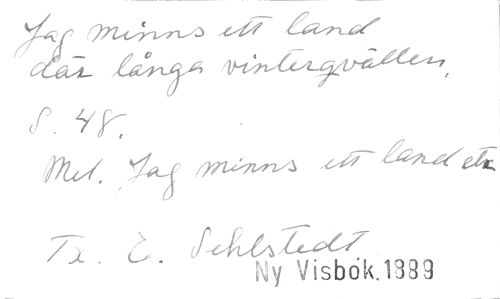 Jag minns ett land
där långa vintergvällen,
S. 48.
Mel. Jag minns ett land etc
Tx. E. Sehlstedt
Ny Visbok.1889